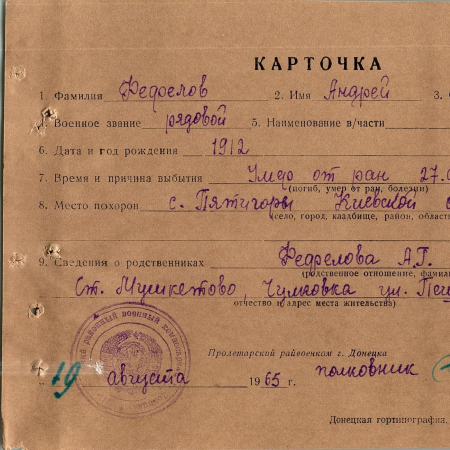 КАРТОЧКА
1. Фамилия Федрелов 2. Имя Андрей 3.
Военное звание рядовой 5. Наименование в/части
6. Дата и год рождения 1912
7. Время и причина выбытия Умер от ран 27.
(погиб, умер от ран, болезни)
8. Место похорон с. Пятигоры Киевской
(село, город, кладбище, район, област
9. Сведения о родственниках Федрелова А.Г.
(родственное отношение, фамил
Ст. Мушкетово, Чумковка ул.
отчество и адрес места жительства)
Пролетарский райвоенком г. Донецка
19 августа 1965 г. полковник
Донецкая гортипография.